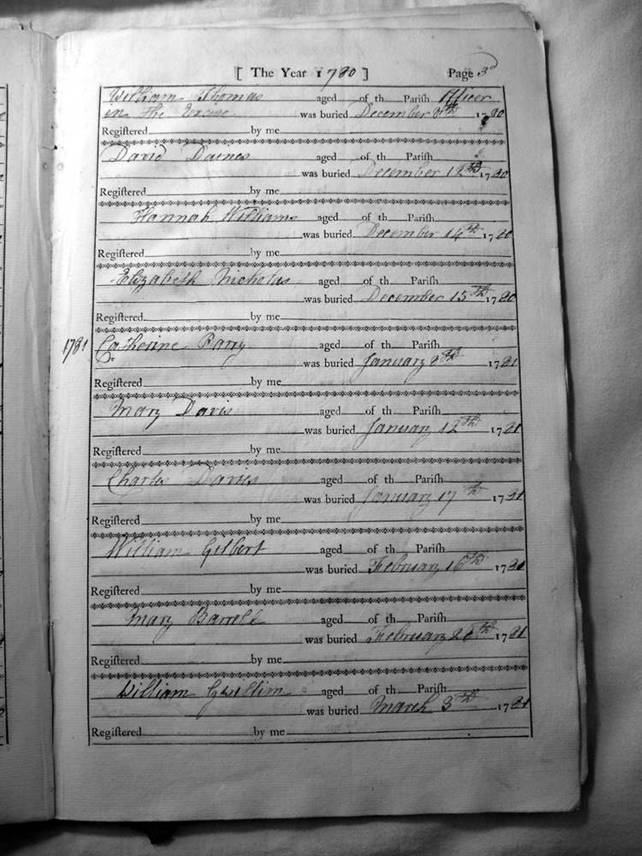 [ The Year 1780 ] Page 3d
William Thomas aged of th Pariſh Officer
in The Excise was buried December 8th 1780
Regiſtered by me
David Davies aged of th Pariſh
was buried December 12th 1780
Regiſtered by me
Hannah Williams aged of th Pariſh
was buried December 14th 1780
Regiſtered by me
Elizabeth Nicholas aged of th Pariſh
was buried December 15th 1780
Regiſtered by me
1781 Catherine Parry aged of th Pariſh
was buried January 8th 1781
Regiſtered by me
Mary Davis aged of th Pariſh
was buried January 12th 1781
Regiſtered by me
Charles Davies aged of th Pariſh
was buried January 17th 1781
Regiſtered by me
William Gilbert aged of th Pariſh
was buried February 16th 1781
Regiſtered by me
Mary Barrell aged of th Pariſh
was buried February 1781
Regiſtered by me
William aged of th Pariſh
was buried March 3th 1781
Regiſtered by me